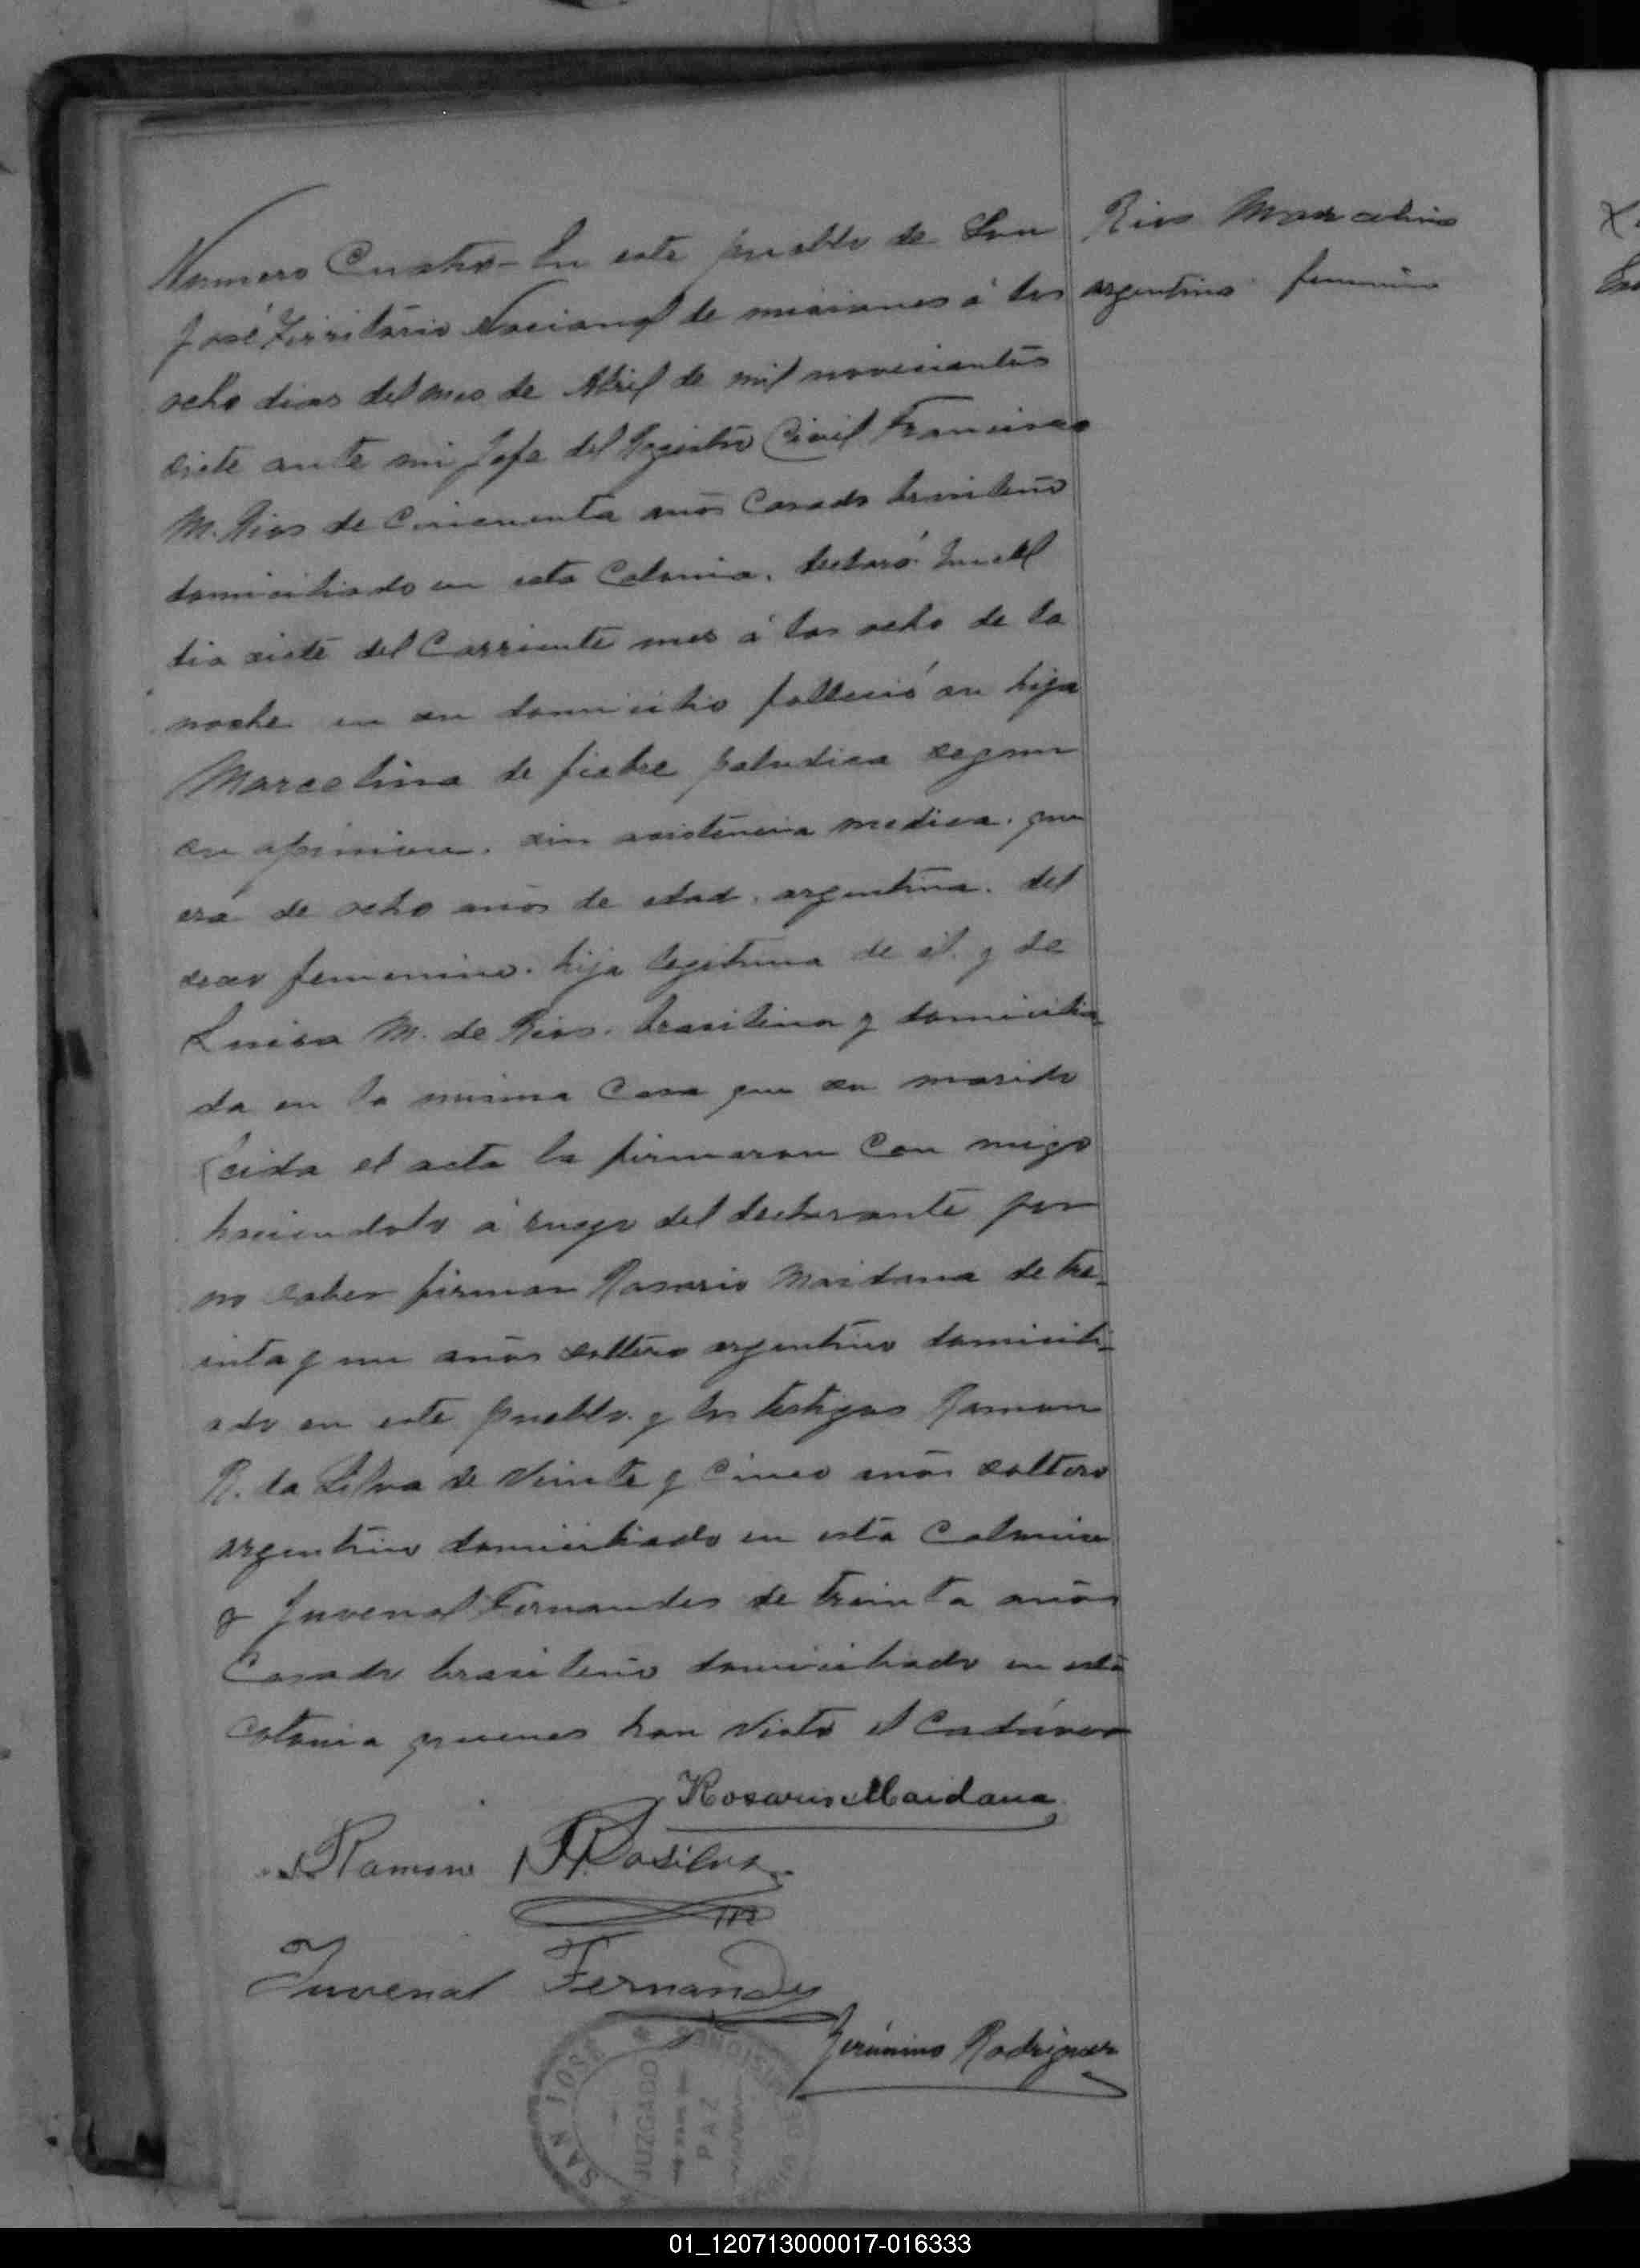 Rios Marcelina
argentina femenino
Numero Cuatro - En este pueblo de San
José Territorio Nacional de misiones á los
ocho dias del mes de Abril de mil novecientos
siete ante mi Jefe del Registro Civil Francisco
M. Rios de Cincuenta años Casado brasileño
domiciliado en esta Colonia. declaró: que el
dia siete del Corriente mes á las ocho de la
noche en su domicilio falleció su hija
Marcelina de fiebre paludica segun
su opinion. sin asistencia medica. que
era de ocho años de edad. argentina. del
sexo femenino. hija legitima de él. y de
Luisa M. de Rios. brasilera y domicilia-
da en la misma Casa que su marido
Leida el acta la firmaron Con migo
haciendolo á ruego del declarante por
no saber firmar Rosario Maidana de tre-
inta y un años soltero argentino domicili-
ado en este pueblo. y los testigos Ramon
R. da Silva de Veinte y Cinco años soltero
argentino domiciliado en esta Colonia
y Juvenal Fernandes de treinta años
Casado brasileño domiciliado en esta
Colonia quienes han visto el Cadáver
Rosario Maidana
Ramon R Dasilva
Juvenal Fernandez
Jerónimo Rodriguez
SAN JOSÉ
JUZGADO
PAZ
MISIONES
01_120713000017-016333